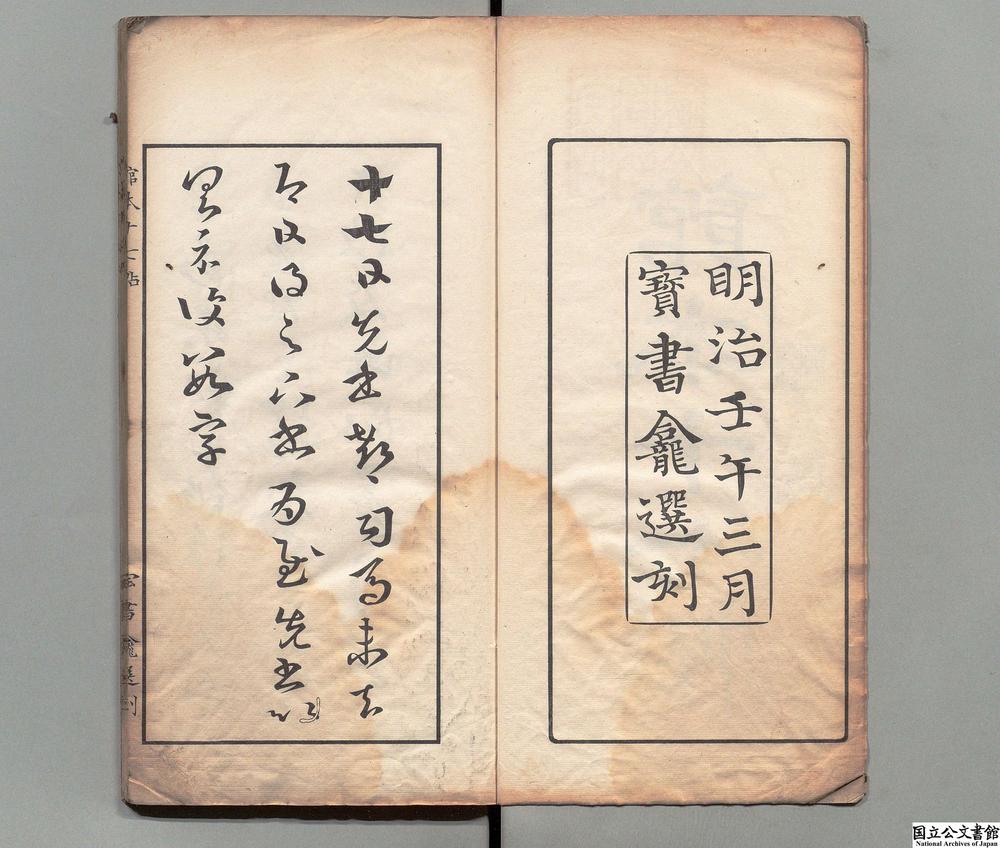 明治壬午三月
寶書龕選刻
十七日先書郗司馬未去
即日得足下書為慰先書以
具示復數字
館本十七帖
寶書龕選刻
国立公文書館
National Archives of Japan